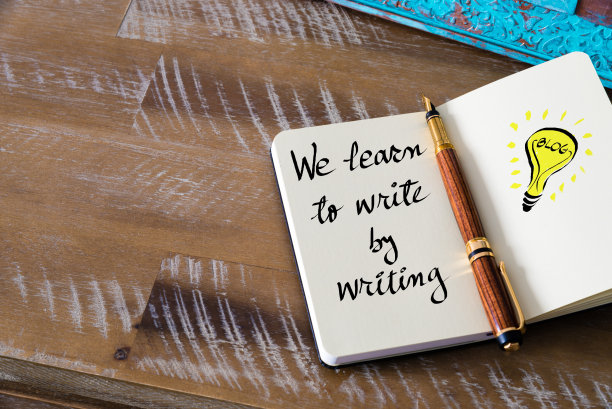 We learn
to write
by
writing
BLOG